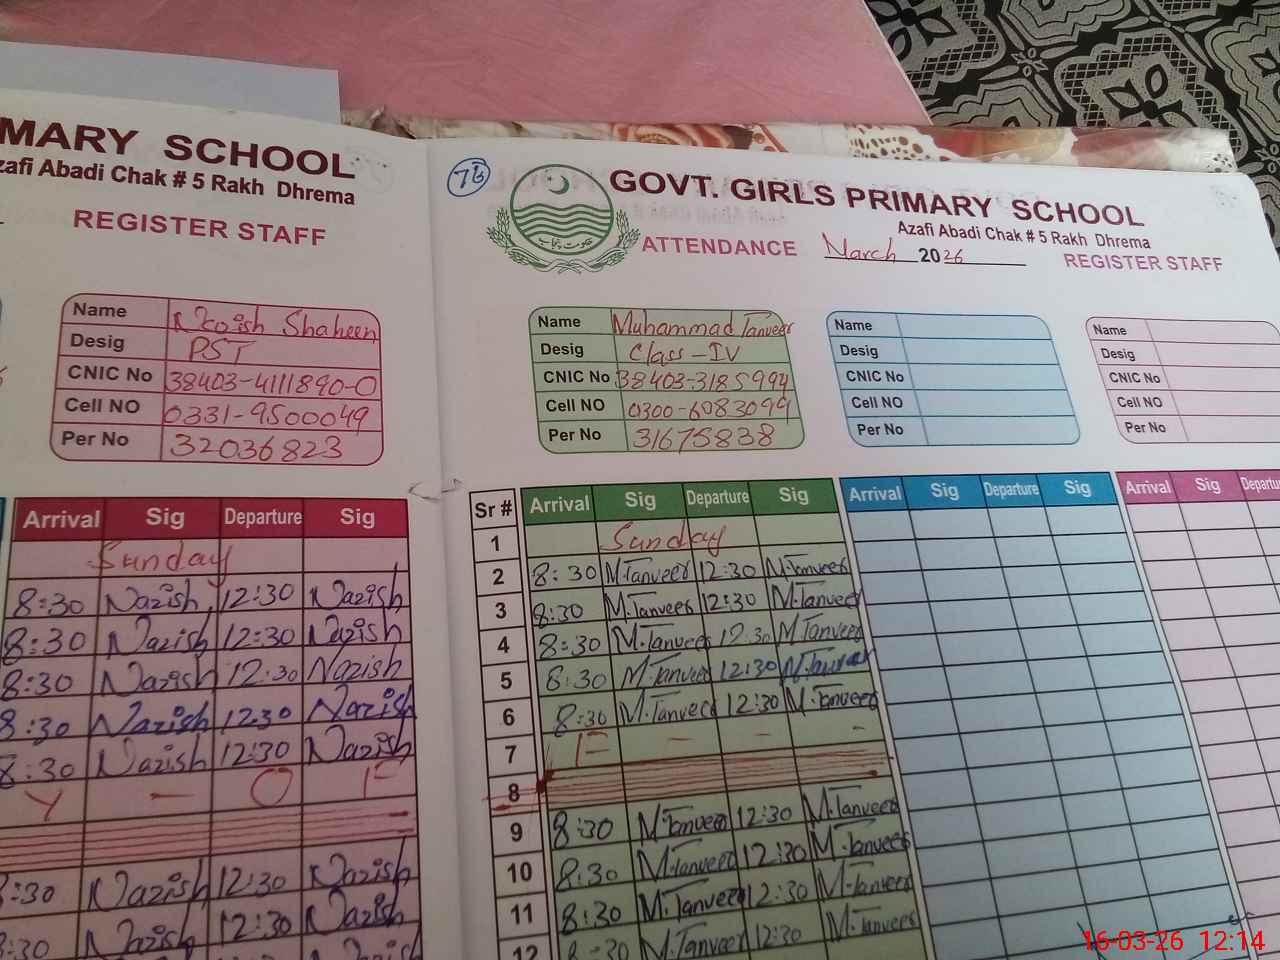 MARY SCHOOL
zafi Abadi Chak # 5 Rakh Dhrema
REGISTER STAFF
Name Shaheen
Desig PST
CNIC No 38403-4111890-0
Cell NO 0331-9500049
Per No 32036823
Arrival Sig Departure Sig
Sunday
8:30 Nazish 12:30 Nazish
8:30 Nazish 12:30 Nazish
8:30 Nazish 12:30 Nazish
8:30 Nazish 1230 Nazish
8:30 Nazish 12:30 Nazish
Y - O F
:30 Nazish 12:30 Nazish
:30 Nazish 12:30 Nazish
76
حکومت پنجاب
GOVT. GIRLS PRIMARY SCHOOL
Azafi Abadi Chak # 5 Rakh Dhrema
ATTENDANCE March 2026 REGISTER STAFF
Name Muhammad Tanveer
Desig Class-IV
CNIC No 38403-3185994
Cell NO 0300-6083099
Per No 31675838
Name
Desig
CNIC No
Cell NO
Per No
Name
Desig
CNIC No
Cell NO
Per No
Sr # Arrival Sig Departure Sig Arrival Sig Departure Sig Arrival Sig Departu
1 Sunday
2 8:30 M.Tanveer 12:30 M.Tanveer
3 8:30 M.Tanveer 12:30 M.Tanveer
4 8:30 M.Tanveer 12:30 M.Tanveer
5 8:30 M.Tanveer 12:30 M.Tanveer
6 8:30 M.Tanveer 12:30 M.Tanveer
7 F - - -
8
9 8:30 M.Tanveer 12:30 M.Tanveer
10 8:30 M.Tanveer 12:30 M.Tanveer
11 8:30 M.Tanveer 12:30 M.Tanveer
12 8:30 M.Tanveer 12:30 M.Tanveer
16-03-26 12:14